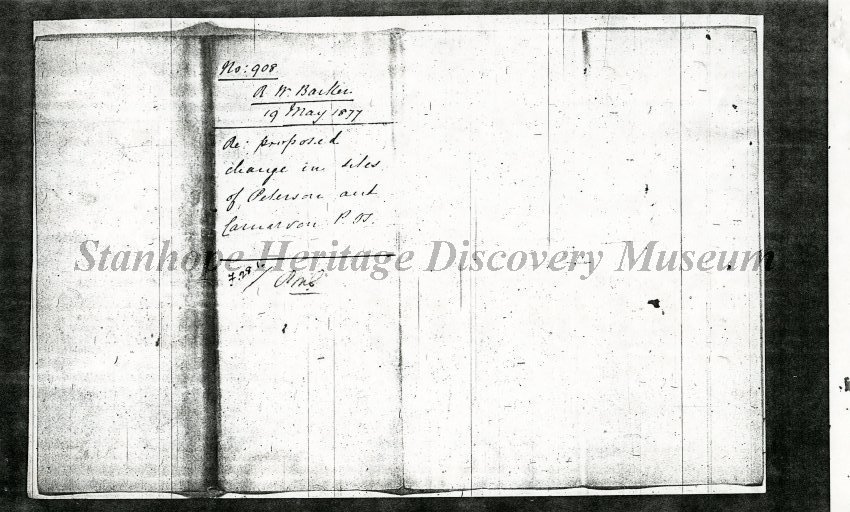 No: 908
R. W. Barker
19 May 1877
Re: proposed
change in sites
of Peterson and
Carnarvon P. Os.
Stanhope Heritage Discovery Museum